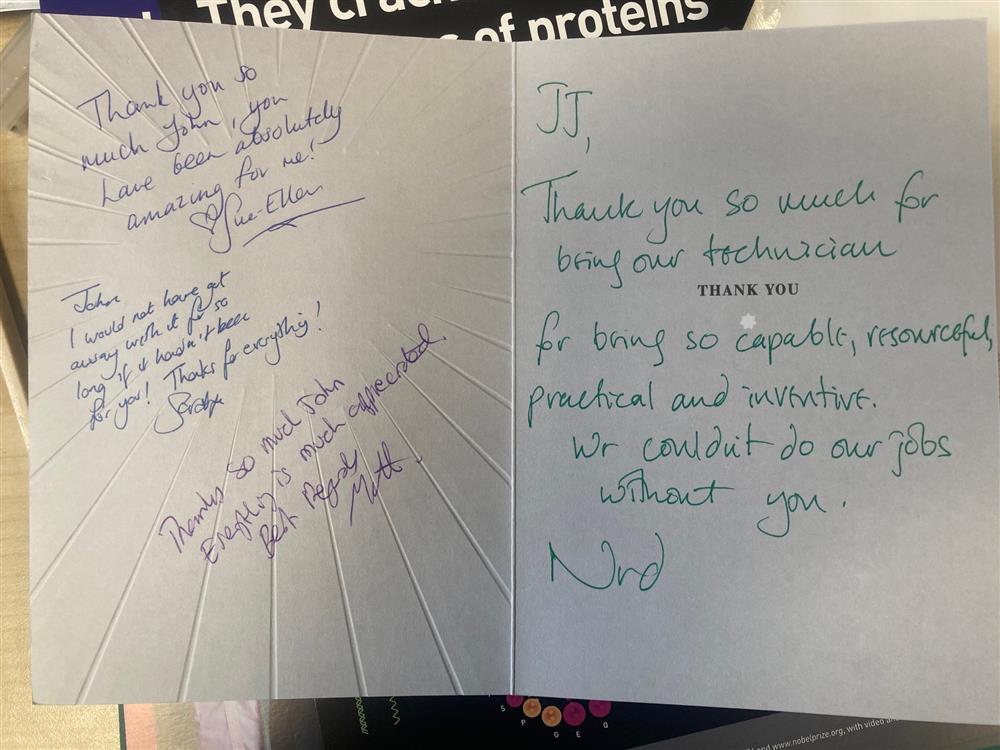 They crack
s of proteins
Thank you so
much John, you
have been absolutely
amazing for me!
Sue-Ellen
John
I would not have got
away with it for so
long if it hadn't been
for you! Thanks for everything!
Thanks so much John
Everything is much appreciated.
Best Regards
Matt.
JJ,
Thank you so much for
being our technician
THANK YOU
for being so capable, resourceful,
practical and inventive.
We couldn't do our jobs
without you.
Ned
S
P
G
E
Q
and www.nobelprize.org, with video